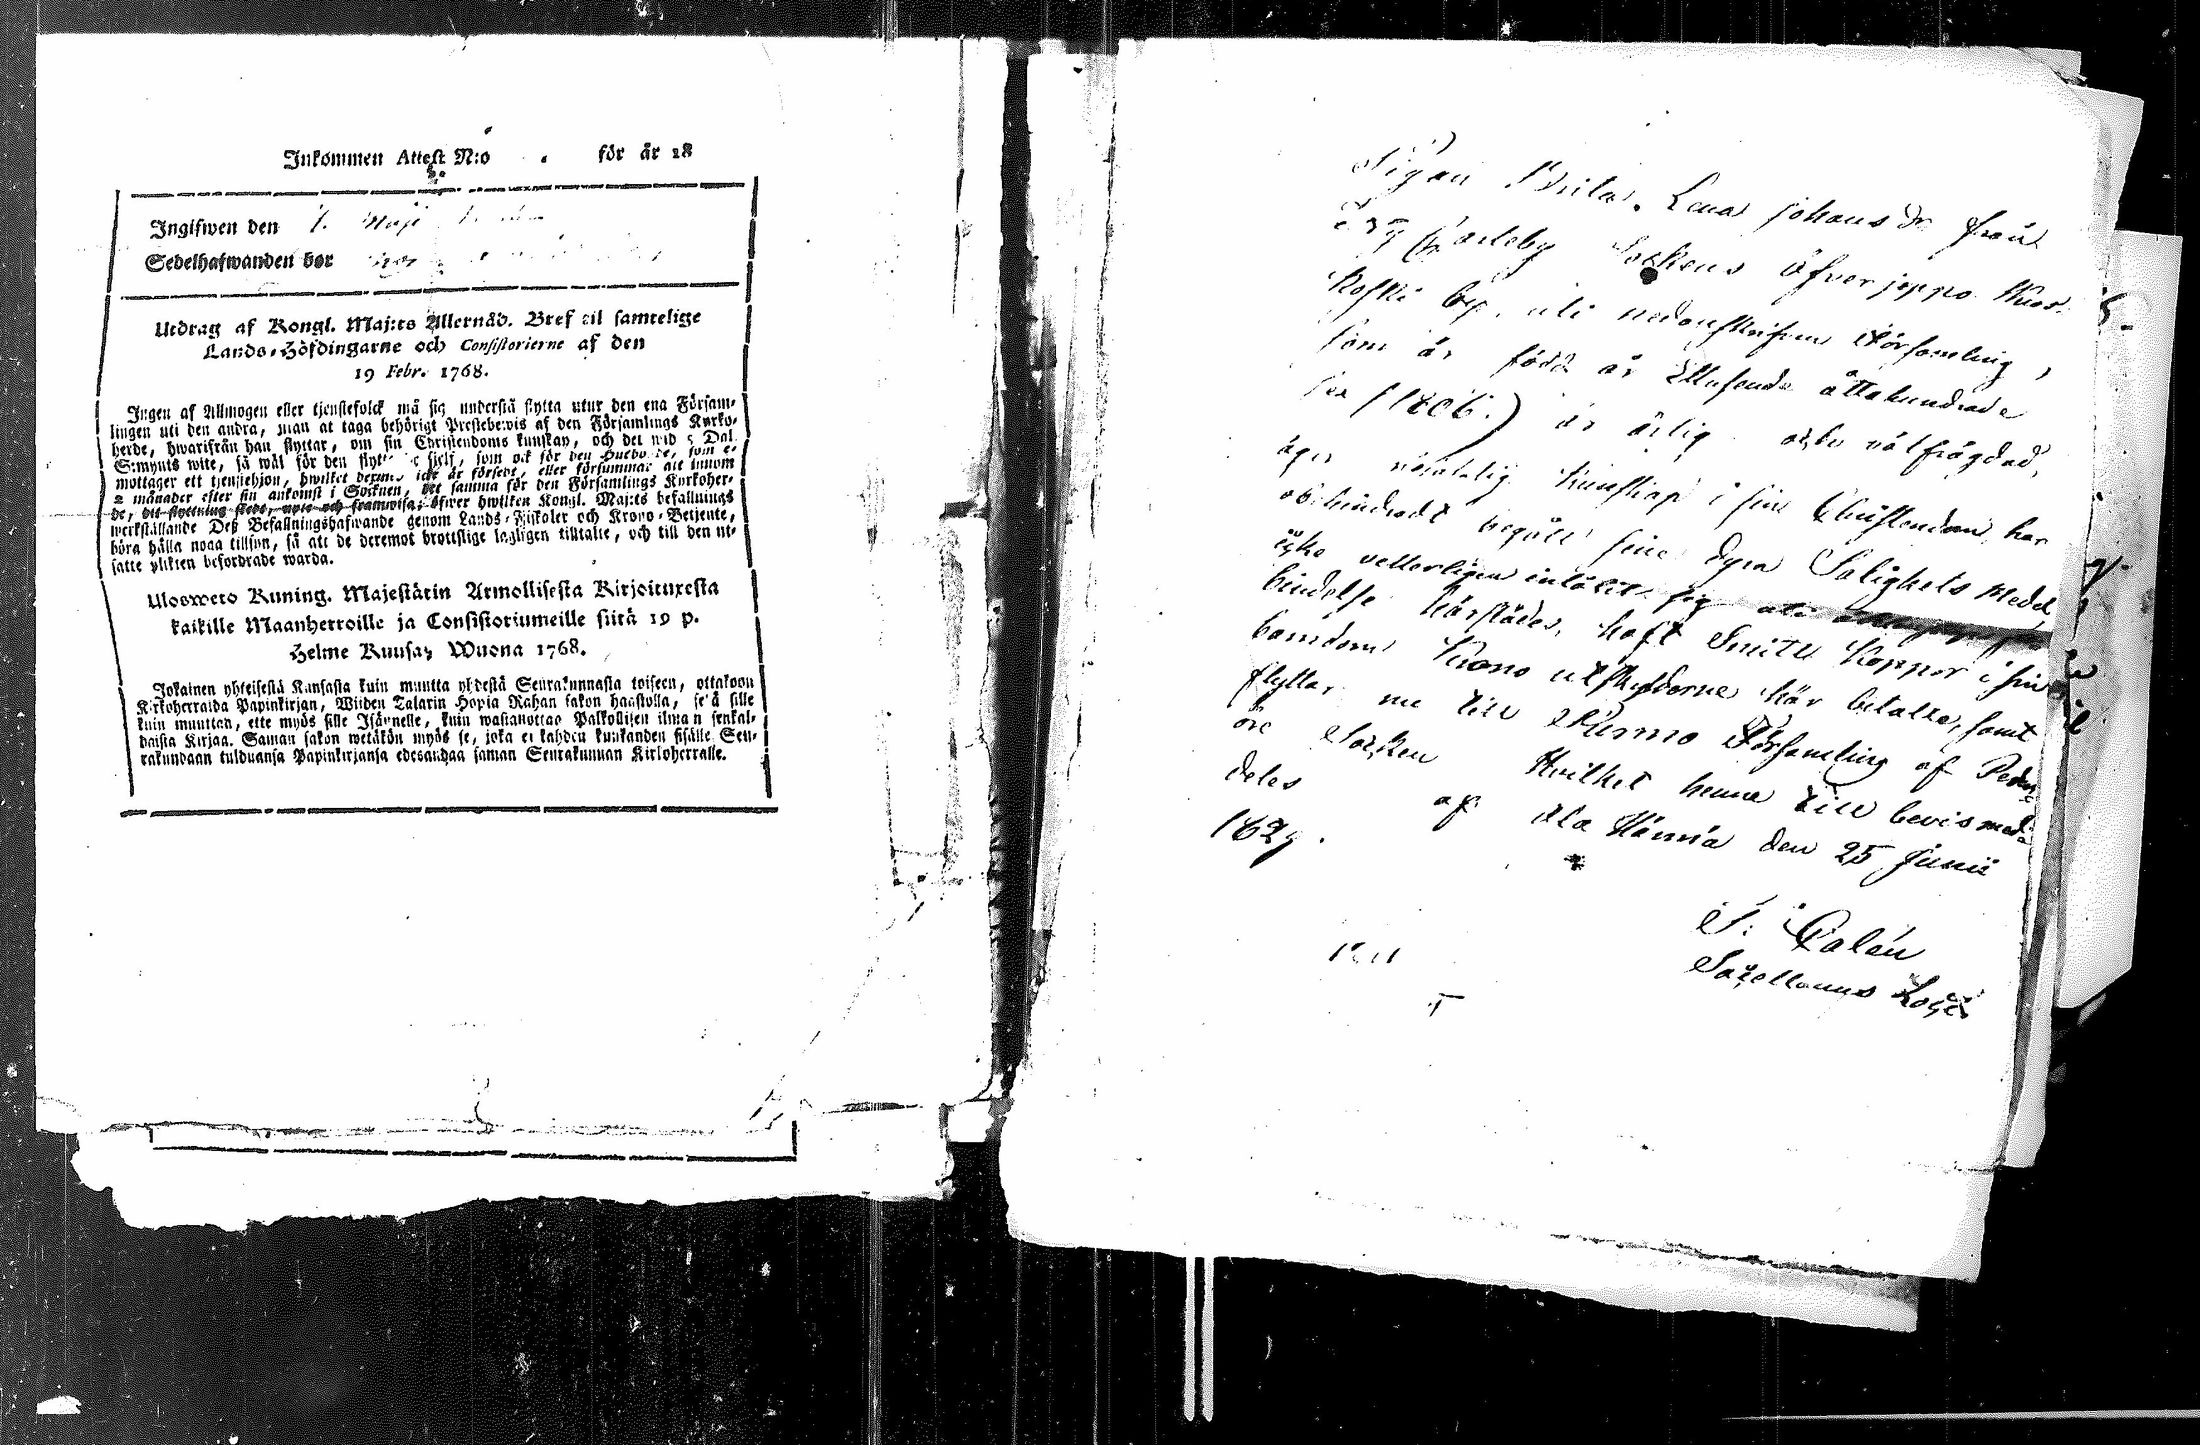 Inkommen Attest N:o . för år 18
Ingifwen den 1. Maji
Sedelhafwanden bor
Utdrag af Kongl. Maj:ts Allernåd. Bref til samtelige
Lands-Höfdingarne och Consistorierne af den
19 Febr. 1768.
Ingen af Allmogen eller tjenstefolck må sig understå flytta utur den ena Försam-
lingen uti den andra, utan at taga behörigt Prestebewis af den Församlings Kyrko-
herde, hwarifrån han flyttar, om sin Christendoms kunskap, och det wid 5 Dal.
S:mynts wite, så wäl för den sjelf, som ock för den som e-
mottager ett tjenstehjon, hwilket icke är försedt, eller försummar att innom
2 månader efter sin ankomst i Socknen, det samma för den Församlings Kyrkoher-
de, framwisa; öfwer hwilken Kongl. Maj:ts befallnings
werkställande Deß Befallningshafwande genom Lands-Fiskaler och Krono-Betjente,
böra hålla noga tillsyn, så att de deremot brottslige lagligen tilltalte, och till den ut-
satte plikten befordrade warda.
Ulosweto Kuning. Majestätin Armollisesta Kirjoituxesta
kaikille Maanherroille ja Consistoriumeille siitä 19 p.
Helme Kuusa, Wuona 1768.
Jokainen yhteisestä Kansasta kuin muutta yhdestä Seurakunnasta toiseen, ottakoon
Kirkoherralda Papinkirjan, Wiiden Talarin Hopia Rahan sakon haastolla, sekä sille
kuin muuttaa, ette myös sille Isännelle, kuin wastanottaa Palkollisen ilman senkal-
daista Kirjaa. Saman sakon wetäkön myös se, joka ei kahden kuukanden sisälle Seu-
rakundaan tulduansa Papinkirjansa edesandaa saman Seurakunnan Kirkoherralle.
Pigan Brita Lena Johansdr från
Ny Carleby Sockens Öfverjeppo
Koski by, uti nedanskrifven Församling,
som är född år Ettusende åttahundrade
sex (1806.) är ärlig och välfrägdad,
äger nöjaktig kunskap i sin Christendom, har
obehindradt begått sine dyra Salighets medel,
icke vetterligen inlåtit sig uti
bindelse härstädes, haft Smitt Koppor i sin
barndom Krono utskylderne här betalte, samt
flyttar nu till Purmo Församling af Peders-
öre Socken Hvilket henne till bevis med-
deles af Ala Härmä den 25 Junii
1829.
Galén
Sacellanus Loci